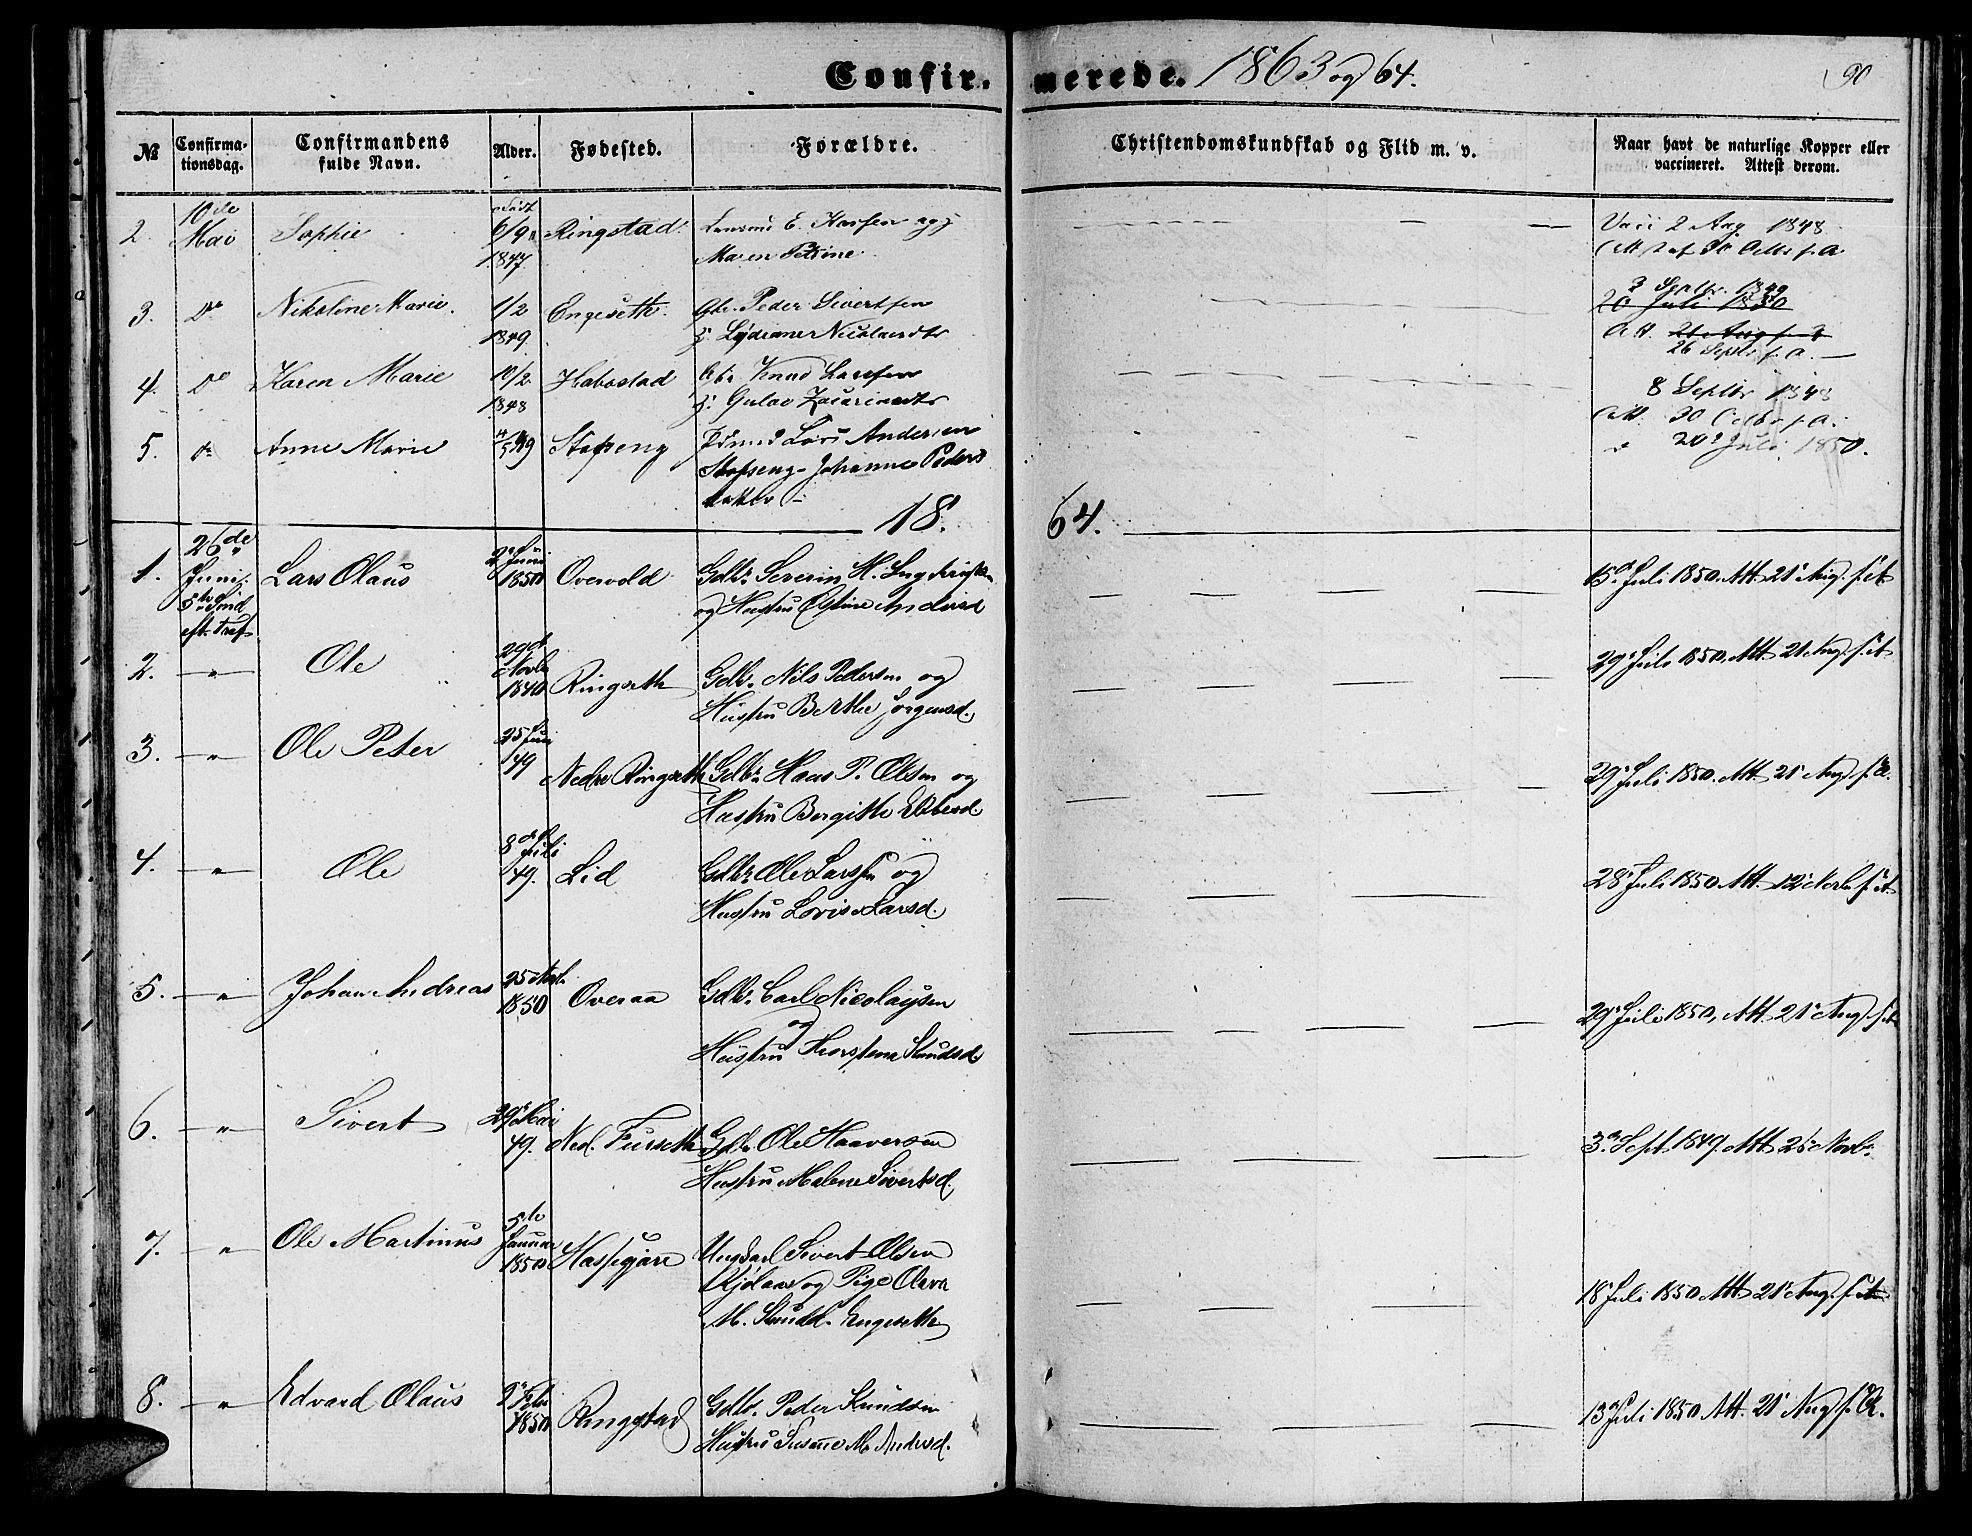 Confir. merede. 1863 og 64. 90
№ Confirma- tionsdag. Confirmandens fulde Navn. Alder. Fødested. Forældre. Christendomskundskab og Flid m. v. Naar havt de naturlige Kopper eller vaccineret. Attest derom.
2. 10de Mai Sophie født 6/9 1847 Ringstad E. og
Maren Petrine
Vacc 2 Aug 1848
3. Do Nikoline Marie. 1/2 1849 Engeseth. Gbr. Peder Sivertsen
3 Septbr. 1849
20 Juli 1850
Att.
26 Septbr. s. A.
4. Do Karen Marie 10/2 1848 Habostad Gbr Knud Larssen
8 Septbr 1848
Att. 30 Octbr s. A.
5. Do Anne Marie 4/5 49 Stafseng Lars Andersen
Stafseng - Johanne Peders
datter
20 Juli 1850.
18. 64.
1. 26de Juni. 5te Sønd eft. Tref. Lars Olaus 2 Juni 1850 Overvold Gdbr. Severin H.
og Hustru Andersd
15 Juli 1850. Att. 21 Aug. s. A
2. " Ole 29de Novbr 1840 Ringseth Gdbr. Nils Pedersen og
Hustru Berthe Jørgensd.
29 Juli 1850. Att. 21 Aug. s. A
3. " Ole Peter 25 Juni 49 Nedre Ringseth Gdbr. Hans P. Olsen og
Hustru Bergitte
29 Juli 1850. Att. 21 Aug. s. A.
4. " Ole 8de Juli 49. Lid Gdbr. Ole Larssen og
Hustru Lovise Larsd.
28 Juli 1850 Att. 12 Novb. s. A
5. " Johan Andreas 25 1850 Overaa Gdbr. Carl Nicolaysen
og
Hustru Knudsd.
29 Juli 1850, Att. 21 Aug. s. A
6. " Sivert 29 Mai 49. Ned. Furseth Gdbr. Ole Haaversen
Hustru Malene Sivertsd.
3 Sept 1849. Att 25 Novb.
7. " Ole Martinus 5te Januar 1850 Ungkarl Sivert Olsen
og Pige Olava
M. Knudd. Engeseth
18 Juli 1850 Att. 21 Aug. s. A
8. " Edvard Olaus 9 Febr 1850 Ringstad Gdbr. Peder Knudsen
Hustru Susane M. Andersd.
13 Juli 1850 Att. 21 Aug s. A.